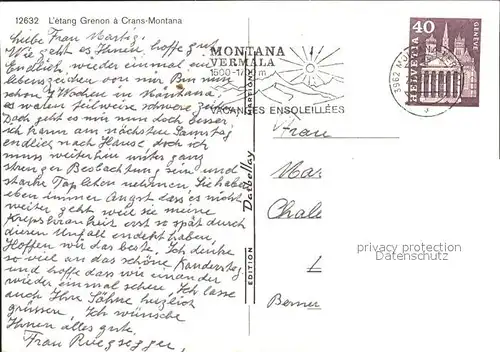 12632 L'étang Grenon à Crans-Montana
Liebe Frau Martig!
Wie geht es Ihnen, hoffe gut.
Endlich wieder einmal ein
lebenszeichen von mir. Bin nun
schon 7 Wochen in Montana
es waren teilweise schwere Zeiten
Doch geht es mir nun doch besser
ich kann am nächsten Samstag
endlich nach Hause, doch ich
muss weiterhin unter ganz
strenger Beobachtung sein und
starke Tabletten nehmen. Sie haben
eben immer Angst dass es nicht
weiter geht weil sie meine
Krebskrankheit erst so spät durch
diesen Unfall endeckt haben,
Hoffen wir das beste. Ich denke
so viel an das schöne Kandersteg
und hoffe dass wir einander
wieder einmal sehen. Ich lasse
auch Ihre Söhne herzlich
grüssen, Ich wünsche
Ihnen alles gute.
Frau Ruegsegger,
EDITION Darbellay MARTIGNY
MONTANA
VERMALA
1500-17 m
VACANCES ENSOLEILLÉES
3962 MO
40
HELVETIA
GENEVE
Frau
Mar
Chale
Berner
privacy protection
oldthing.com